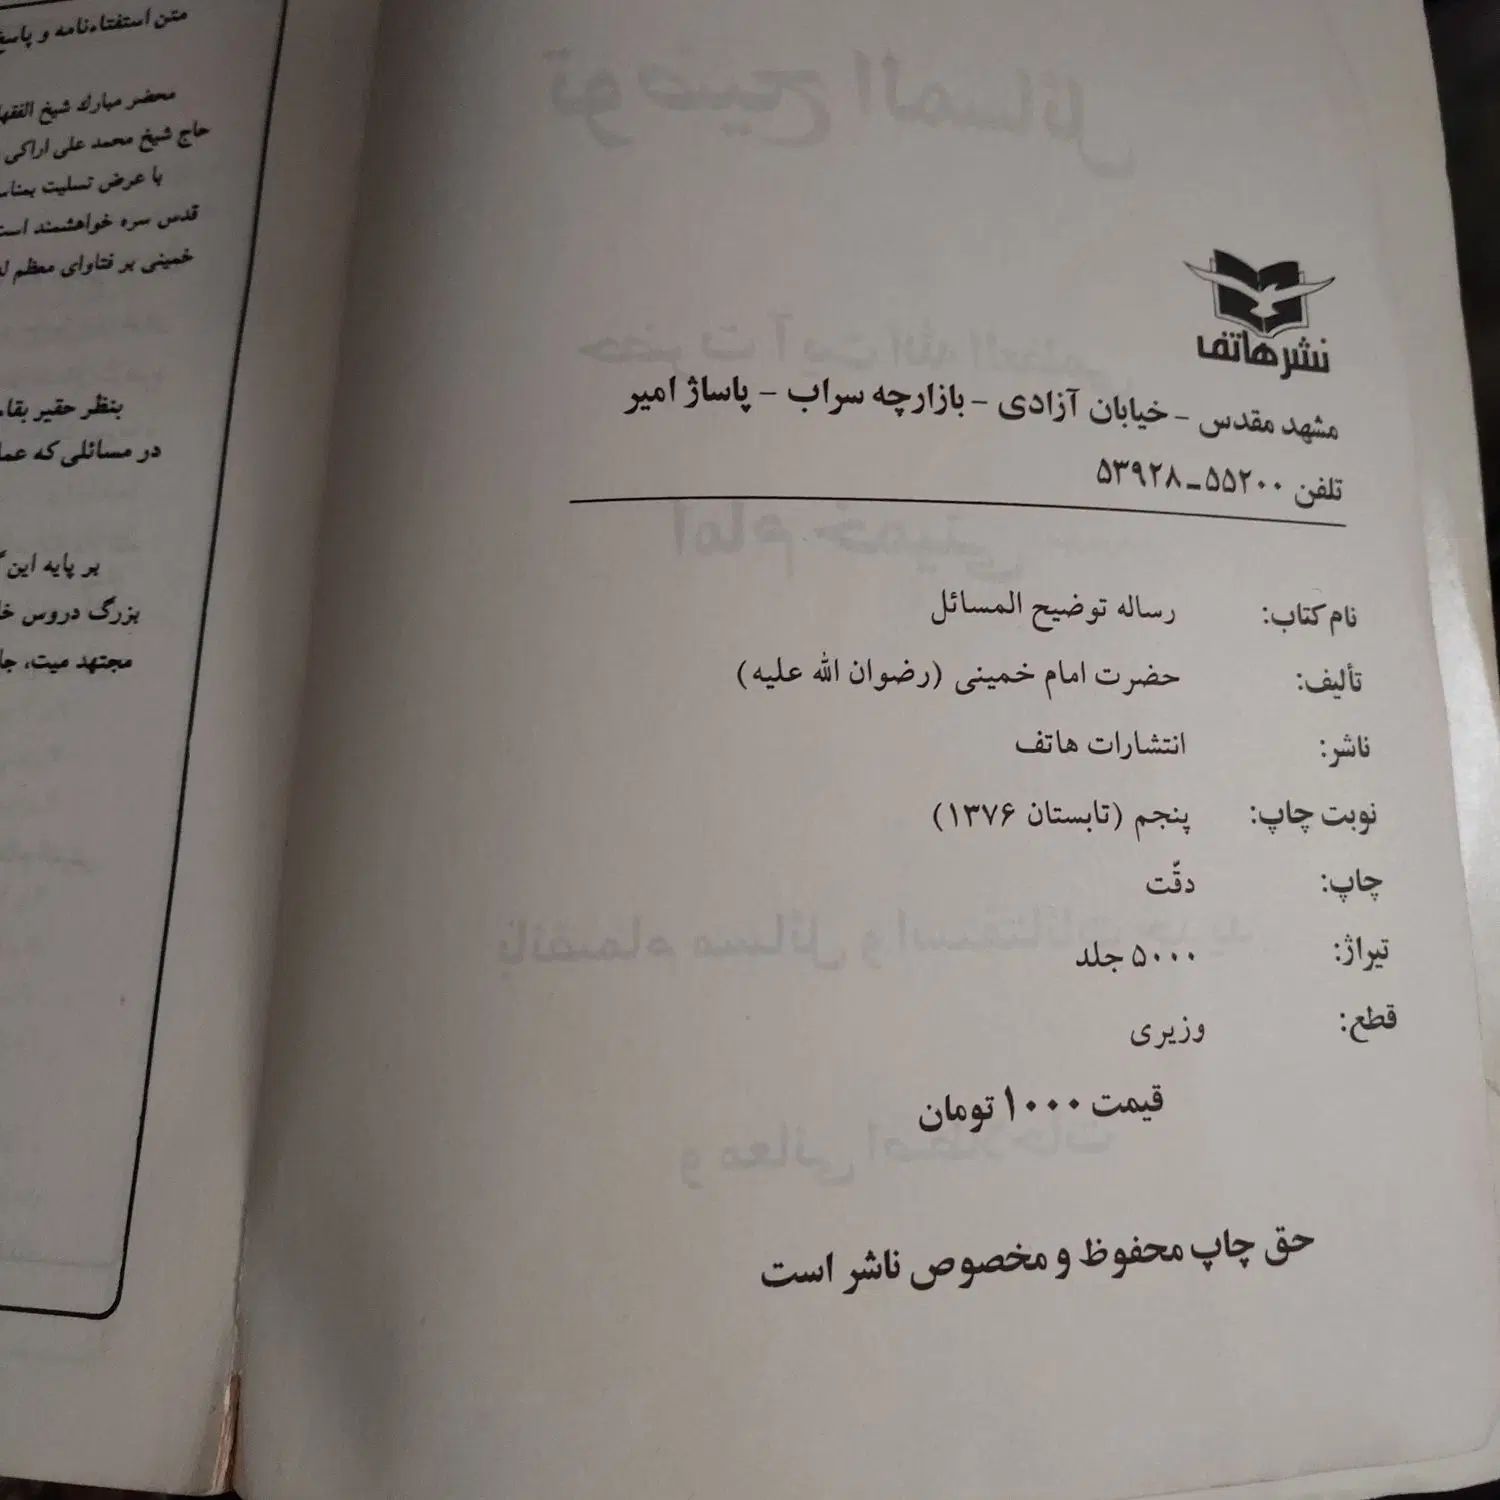 نشر هاتف
مشهد مقدس - خیابان آزادی - بازارچه سراب - پاساژ امیر
تلفن ۵۵۲۰۰ـ۵۳۹۲۸
نام کتاب: رساله توضیح المسائل
تألیف: حضرت امام خمینی (رضوان الله علیه)
ناشر: انتشارات هاتف
نوبت چاپ: پنجم (تابستان ۱۳۷۶)
چاپ: دقّت
تیراژ: ۵۰۰۰ جلد
قطع: وزیری
قیمت ۱۰۰۰ تومان
حق چاپ محفوظ و مخصوص ناشر است
متن استفتاءنامه و پاسخ
محضر مبارك شیخ الفقها
حاج شیخ محمد علی اراکی
با عرض تسلیت بمناس
قدس سره خواهشمند است
خمینی بر فتاوای معظم له
بنظر حقیر بقاء
در مسائلی که عمل
بر پایه این
بزرگ دروس خا
مجتهد میت، جا